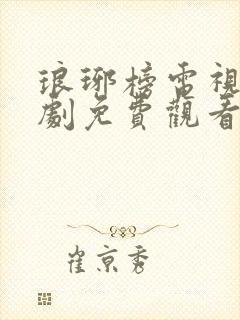 琅琊榜電視
劇免費觀看
崔京秀